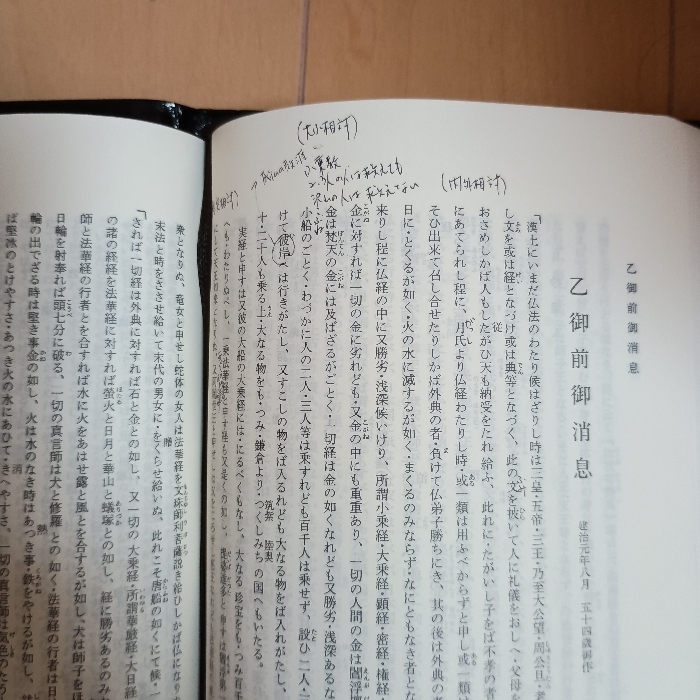 乙御前御消息
乙御前御消息
建治元年八月 五十四歳御作
(大小相対)
(内外相対)
「漢土にいまだ仏法のわたり候はざりし時は三皇・五帝・三王・乃至大公望・周公旦
し文を或は経となづけ或は典等となづく、此の文を披いて人に礼儀をおしへ・父母
おさめしかば人もしたがひ天も納受をたれ給ふ、此れに・たがいし子をば不孝の者
にあてられし程に、月氏より仏経わたりし時・或一類は用ふべからずと申し或一類
そひ出来て召し合せたりしかば外典の者・負けて仏弟子勝ちにき、其の後は外典の者
日に・とくるが如く・火の水に滅するが如く・まくるのみならず・なにともなき者とな
来りし程に仏経の中に又勝劣・浅深候いけり、所謂小乗経・大乗経・顕経・密経・権経
金に対すれば一切の金に劣れども・又金の中にも重重あり、一切の人間の金は閻浮檀
金は梵天の金には及ばざるがごとく・一切経は金の如くなれども又勝劣・浅深あるな
小船のごとく・わづかに人の二人・三人等は乗すれども百千人は乗せず、設ひ二人・三
けて彼岸へは行きがたし、又すこしの物をば入るれども大なる物をば入れがたし、
十二十人も乗る上・大なる物をも・つみ・鎌倉より・つくしみちの国へもいたる。
実経と申すは又彼の大船の大乗経には・にるべくもなし、大なる珍宝をも・つみ百
へもわたりぬべし、一乗法華経と申す経も又是くの如し、
衆となりぬ、竜女と申せし蛇体の女人は法華経を文殊師利菩薩説き給ひしかば仏になり
末法と時をささせ給いて末代の男女に・をくらせ給いぬ、此れこそ唐船の如くにて候・
「されば一切経は外典に対すれば石と金との如し、又一切の大乗経・所謂華厳経・大日経
の諸の経経を法華経に対すれば蛍火と日月と華山と蟻塚との如し、経に勝劣あるのみ
師と法華経の行者とを合すれば水に火をあはせ露と風とを合するが如し、犬は師子を
日輪を射奉れば頭七分に破る、一切の真言師は犬と修羅との如く・法華経の行者は日
輪の出でざる時は堅き事金の如し、火は水のなき時はあつき事・鉄をやけるが如し、
ば堅氷のとけやすさ・あつき火の水にあひて・きへやすさ、一切の真言師は気色のたう